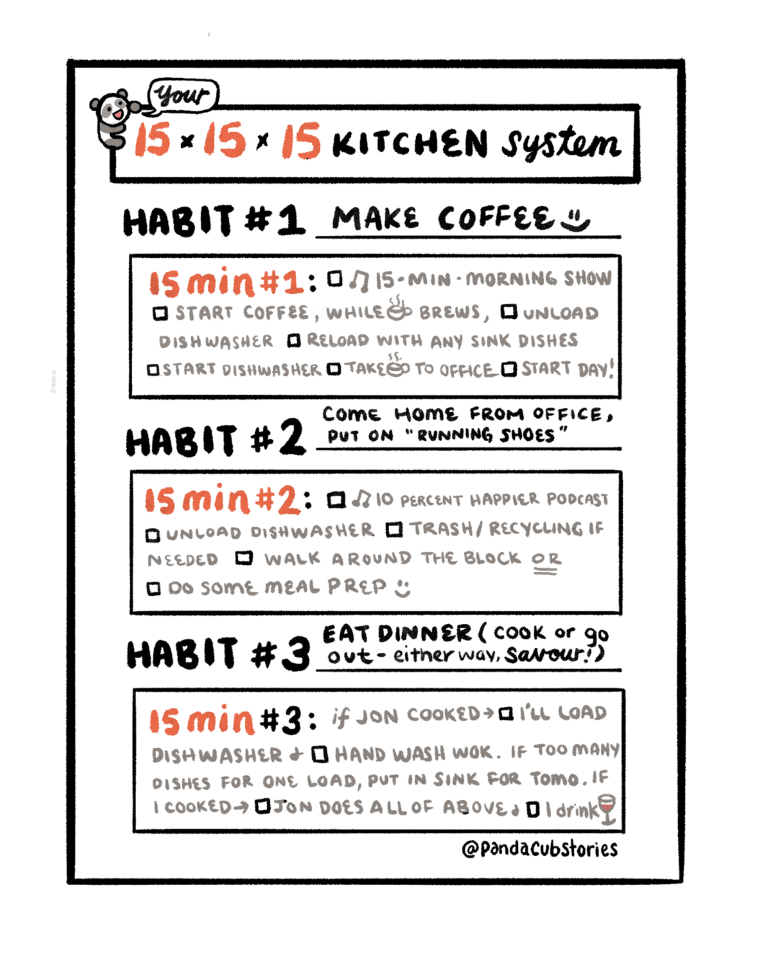 Your
15 × 15 × 15 KITCHEN system
HABIT #1 MAKE COFFEE
15 min #1: 15-MIN-MORNING SHOW
START COFFEE, WHILE BREWS, UNLOAD
DISHWASHER RELOAD WITH ANY SINK DISHES
START DISHWASHER TAKE TO OFFICE START DAY!
HABIT #2 COME HOME FROM OFFICE,
PUT ON "RUNNING SHOES"
15 min #2: 10 PERCENT HAPPIER PODCAST
UNLOAD DISHWASHER TRASH/RECYCLING IF
NEEDED WALK AROUND THE BLOCK OR
DO SOME MEAL PREP
HABIT #3 EAT DINNER (COOK or go
out - either way, savour!)
15 min #3: if JON COOKED → I'LL LOAD
DISHWASHER & HAND WASH WOK. IF TOO MANY
DISHES FOR ONE LOAD, PUT IN SINK FOR TOMO. IF
I COOKED → JON DOES ALL OF ABOVE & I drink
@PandaCubStories